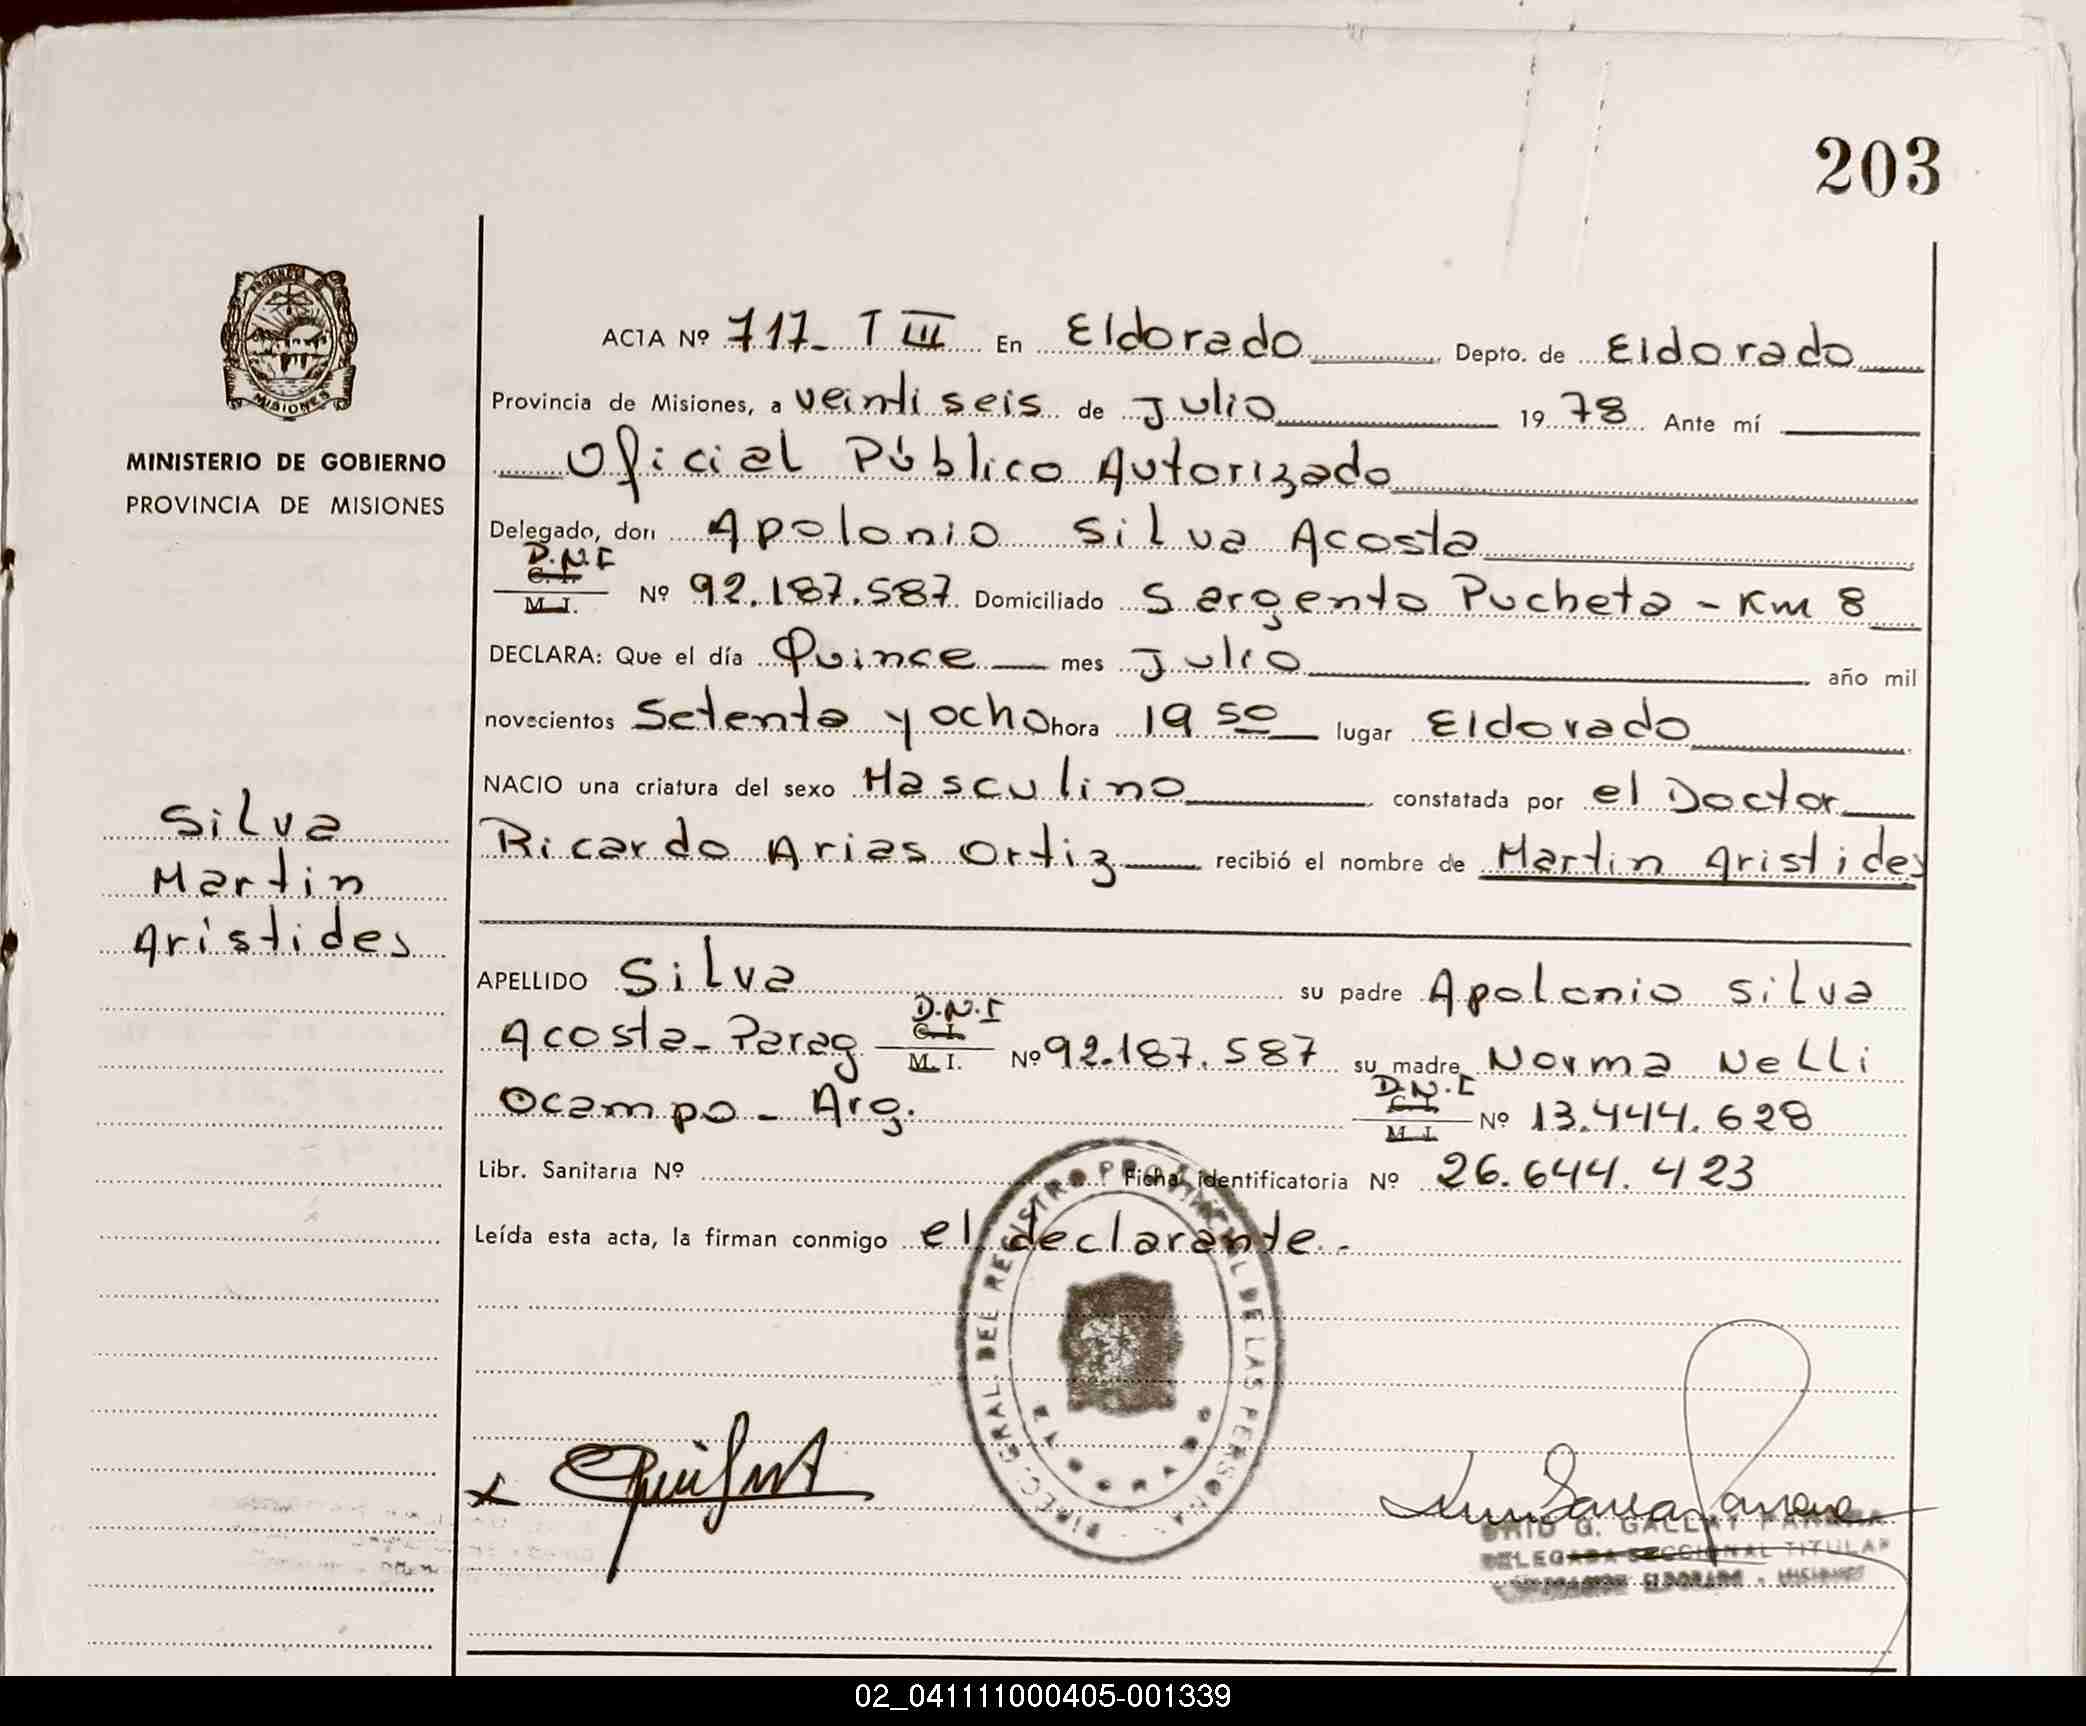 203
MINISTERIO DE GOBIERNO
PROVINCIA DE MISIONES
Silva
Martin
Aristides
ACTA Nº 717- T III En Eldorado Depto. de Eldorado
Provincia de Misiones, a veinti seis de Julio 1978 Ante mí
Oficial Público Autorizado
Delegado, don Apolonio Silva Acosta
D.N.I
C. I.
M. I. Nº 92.187.587 Domiciliado Sargento Pucheta - Km 8
DECLARA: Que el día Quince mes Julio año mil
novecientos Setenta y ocho hora 19 50 lugar Eldorado
NACIO una criatura del sexo Masculino constatada por el Doctor
Ricardo Arias Ortiz recibió el nombre de Martin Aristides
APELLIDO Silva su padre Apolonio Silva
D.N.I
C. I.
Acosta - Parag M. I. Nº 92.187.587 su madre Norma Nelli
D.N.I
C. I.
Ocampo - Arg. M. I. Nº 13.444.628
Libr. Sanitaria Nº Ficha identificatoria Nº 26.644.423
Leída esta acta, la firman conmigo el declarante.-
DIREC. GRAL. DEL REGISTRO PROVINCIAL DE LAS PERSONAS
ELDORADO
G. GALLAY
DELEGADA SECCIONAL TITULAR
DELEGACION ELDORADO - MISIONES
02_041111000405-001339